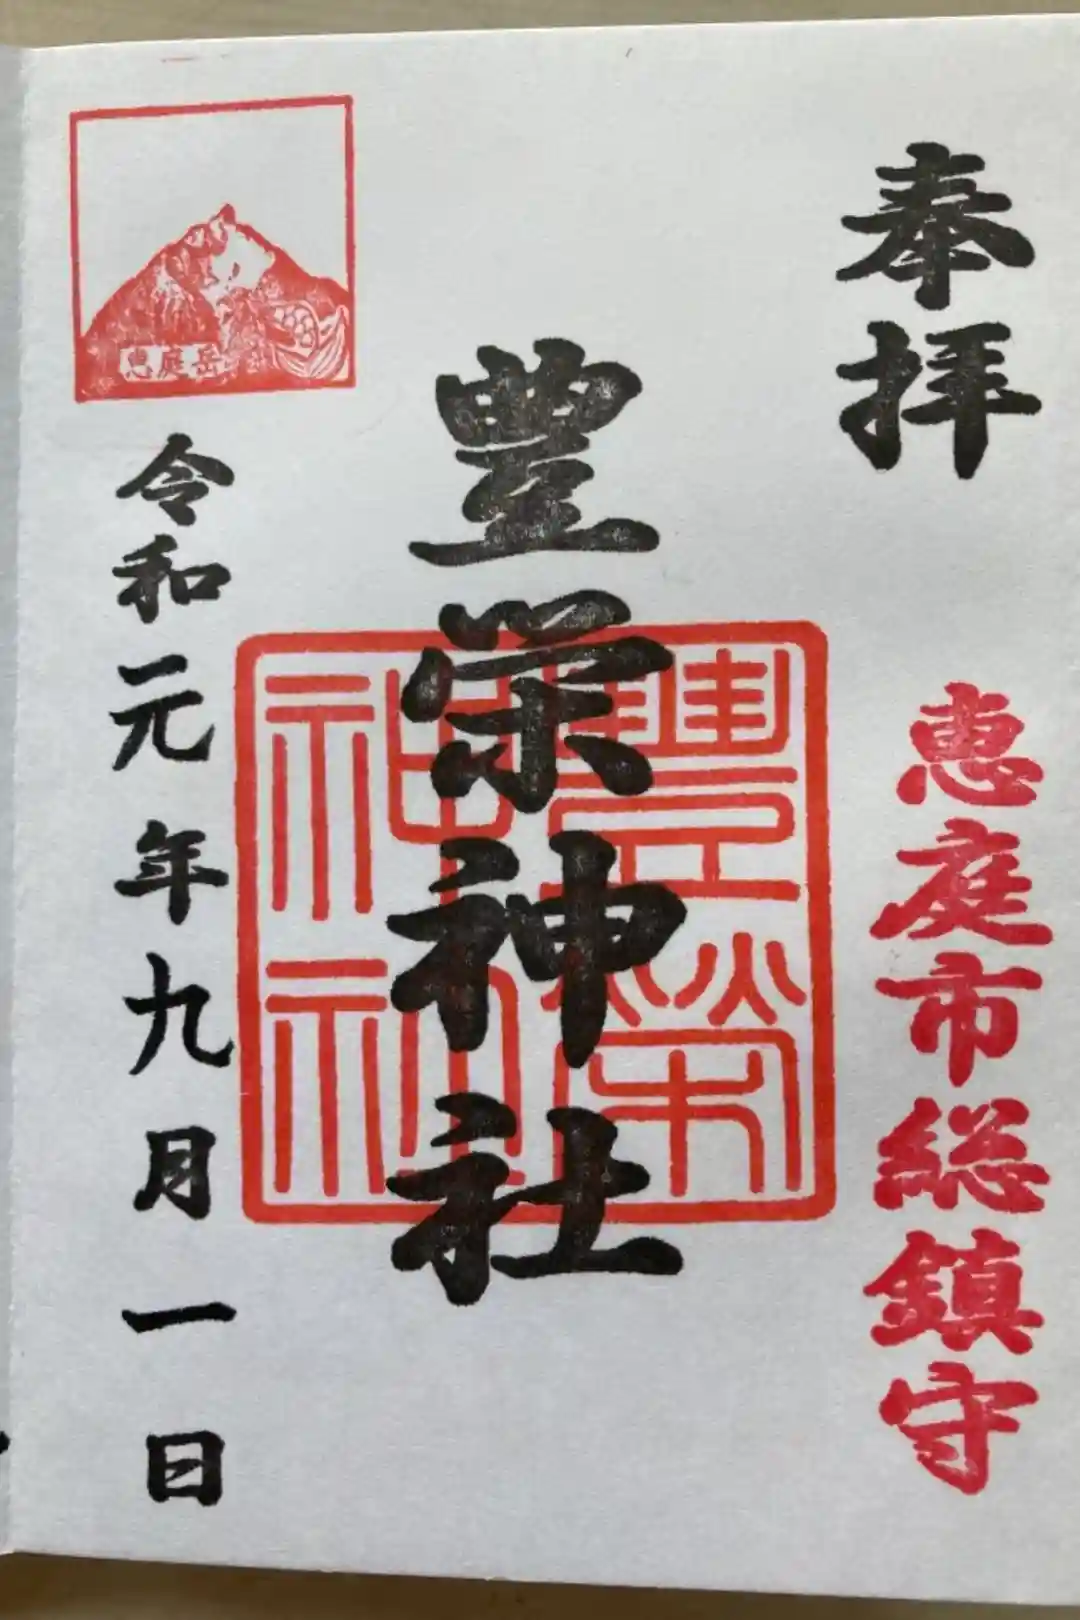 奉拝
恵庭市総鎮守
豊栄神社
豊榮神社
恵庭岳
令和元年九月一日